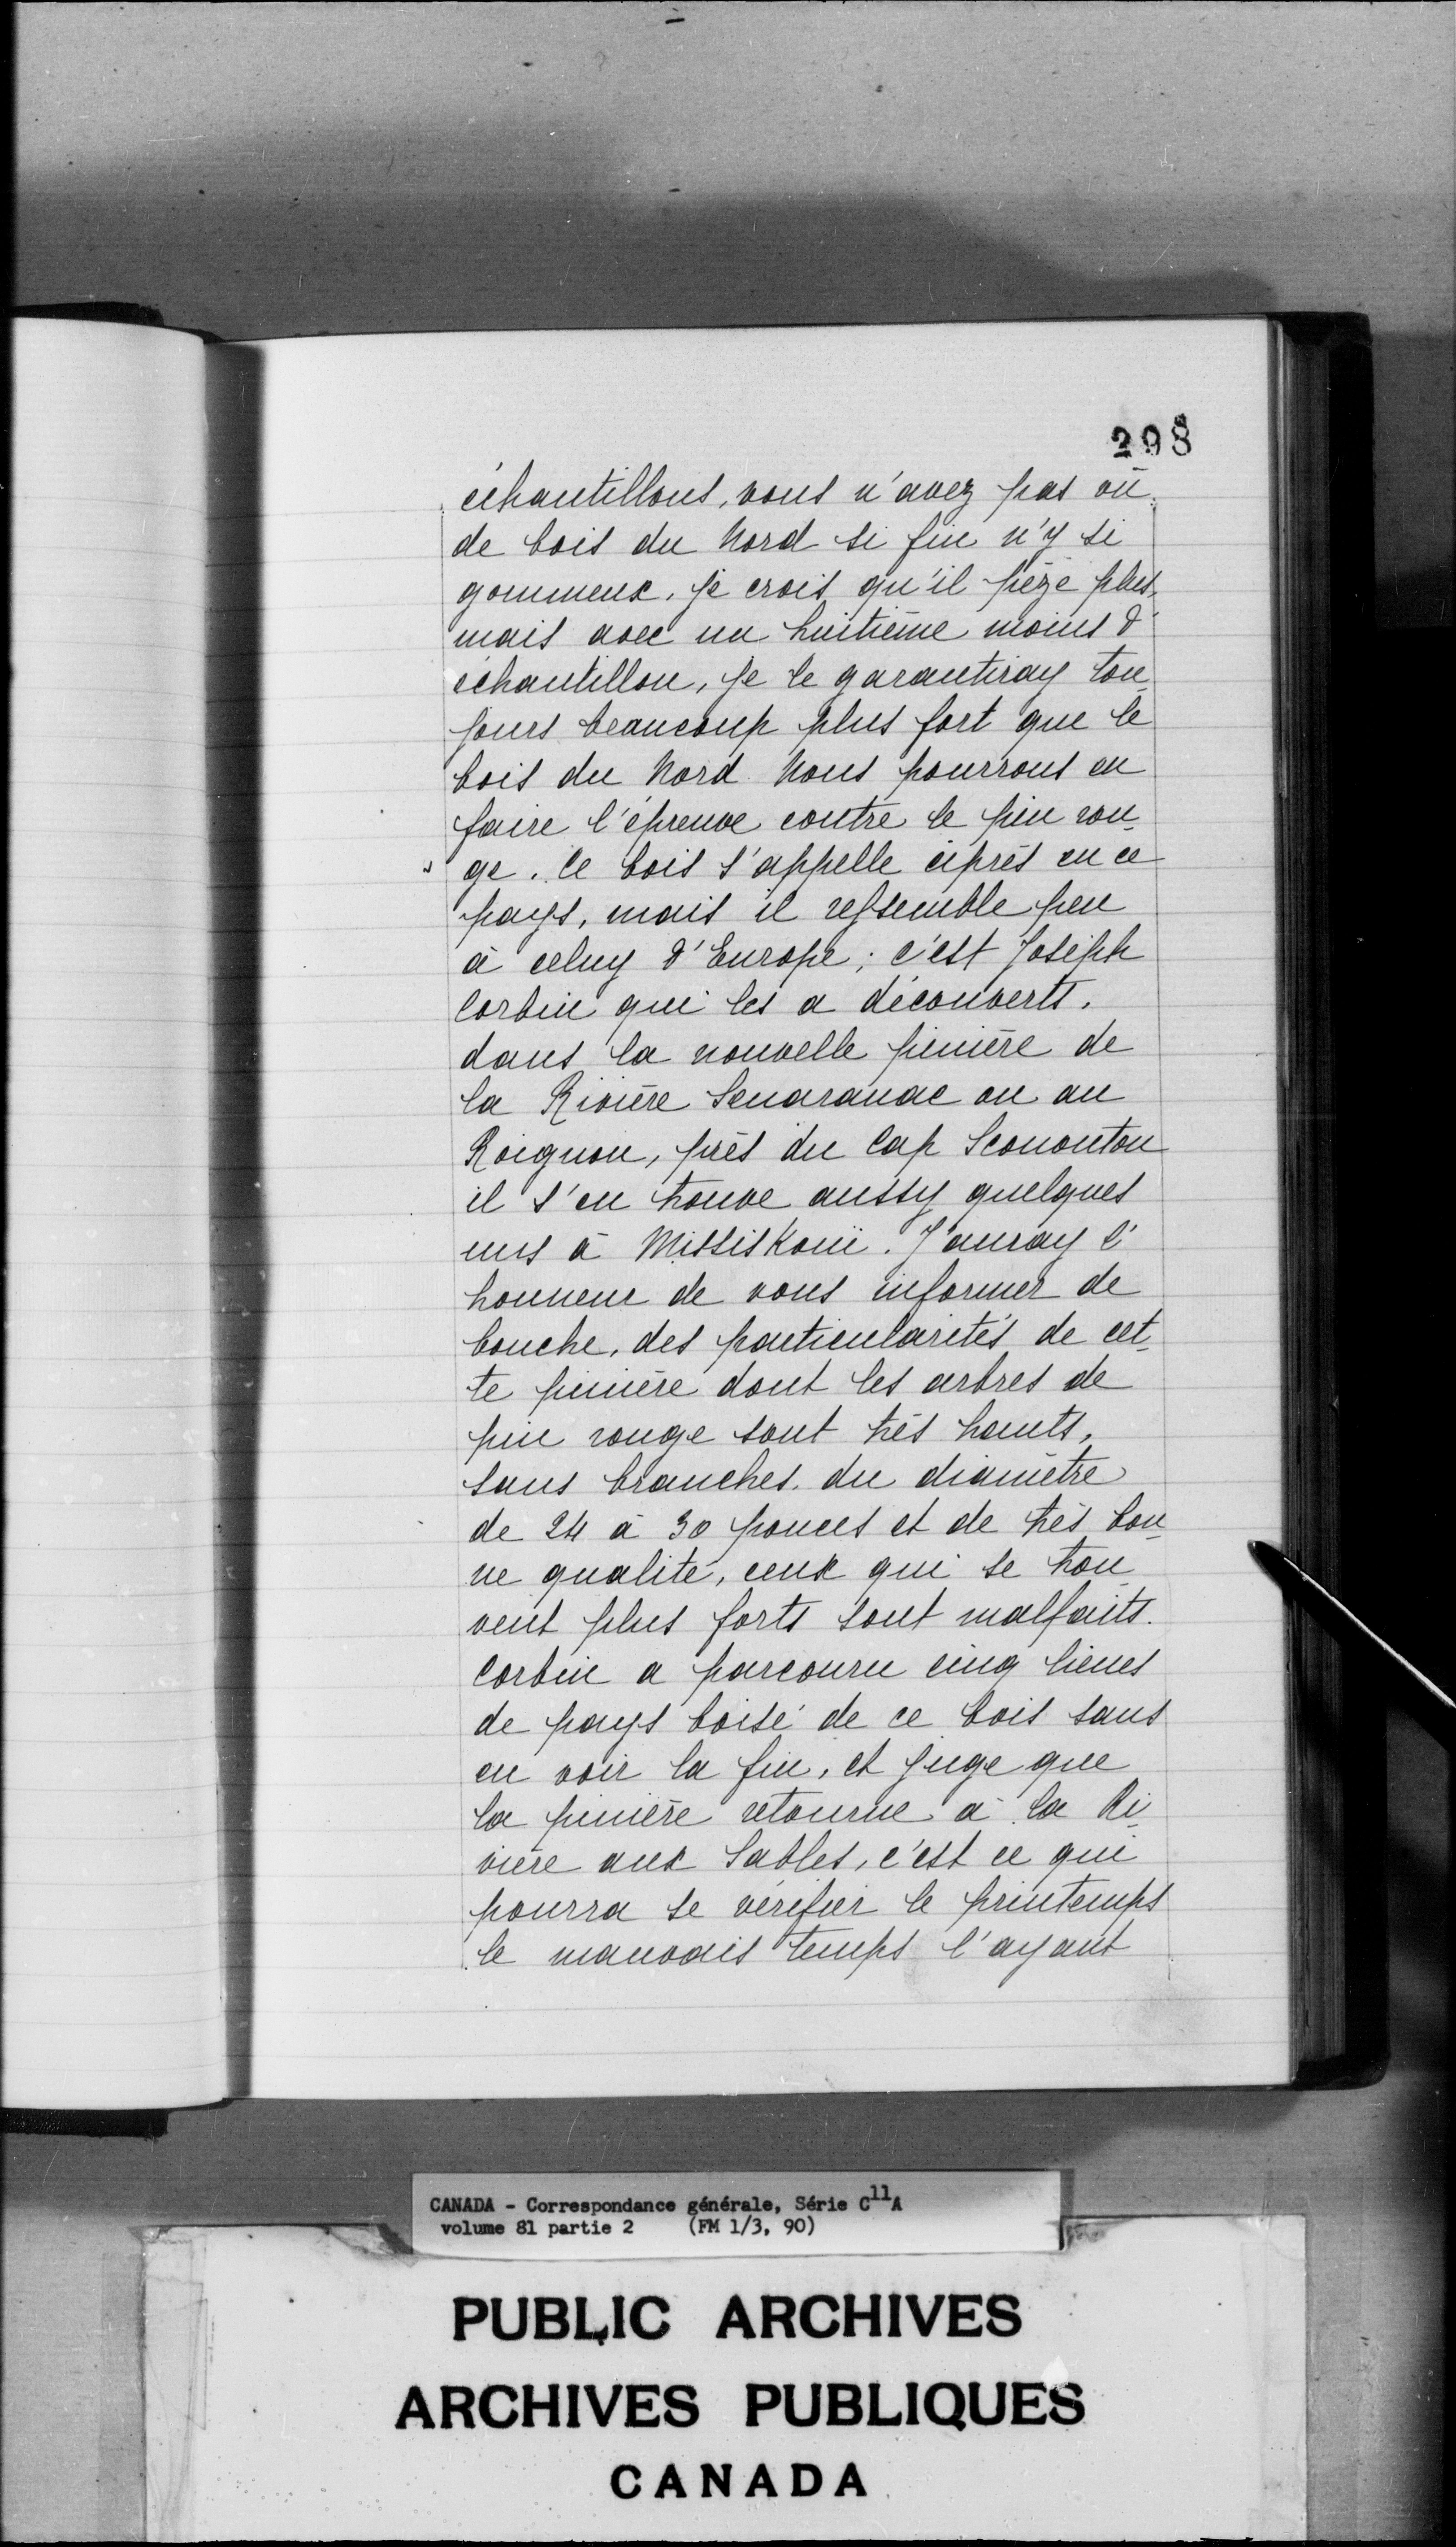 298
échantillons, vous n'avez pas vû
de bois du Nord si fin n'y si
gommeux. Je crois qu'il pèze plus,
mais avec un huitième moins d'
échantillon, je le garantiray tou-
jours beaucoup plus fort que le
bois du Nord. Nous pourrons en
faire l'épreuve contre le pin rou-
ge. Ce bois s'appelle ciprès en ce
pays, mais il ressemble peu
à celuy d'Europe; c'est Joseph
Corbin qui les a découverts.
dans la nouvelle pinière de
la Rivière Senaranac ou au
Roignon, près du Cap Scononton
il s'en trouve aussy quelques
uns à Missiskouï. J'auray l'
honneur de vous informer de
bouche, des particularités de cet-
te pinière dont les arbres de
pin rouge sont très hauts,
sans branches, du diamètre
de 24 à 30 pouces et de très bon-
ne qualité, ceux qui se trou-
vent plus forts sont malfaits.
Corbin a parcouru cinq lieues
de pays boisé de ce bois sans
en voir la fin, et juge que
la pinière retourne à la Ri-
vière aux Sables, c'est ce qui
pourra se vérifier le printemps
le mauvais temps l'ayant
CANADA - Correspondance générale, Série C11A
volume 81 partie 2 (FM 1/3, 90)
PUBLIC ARCHIVES
ARCHIVES PUBLIQUES
CANADA